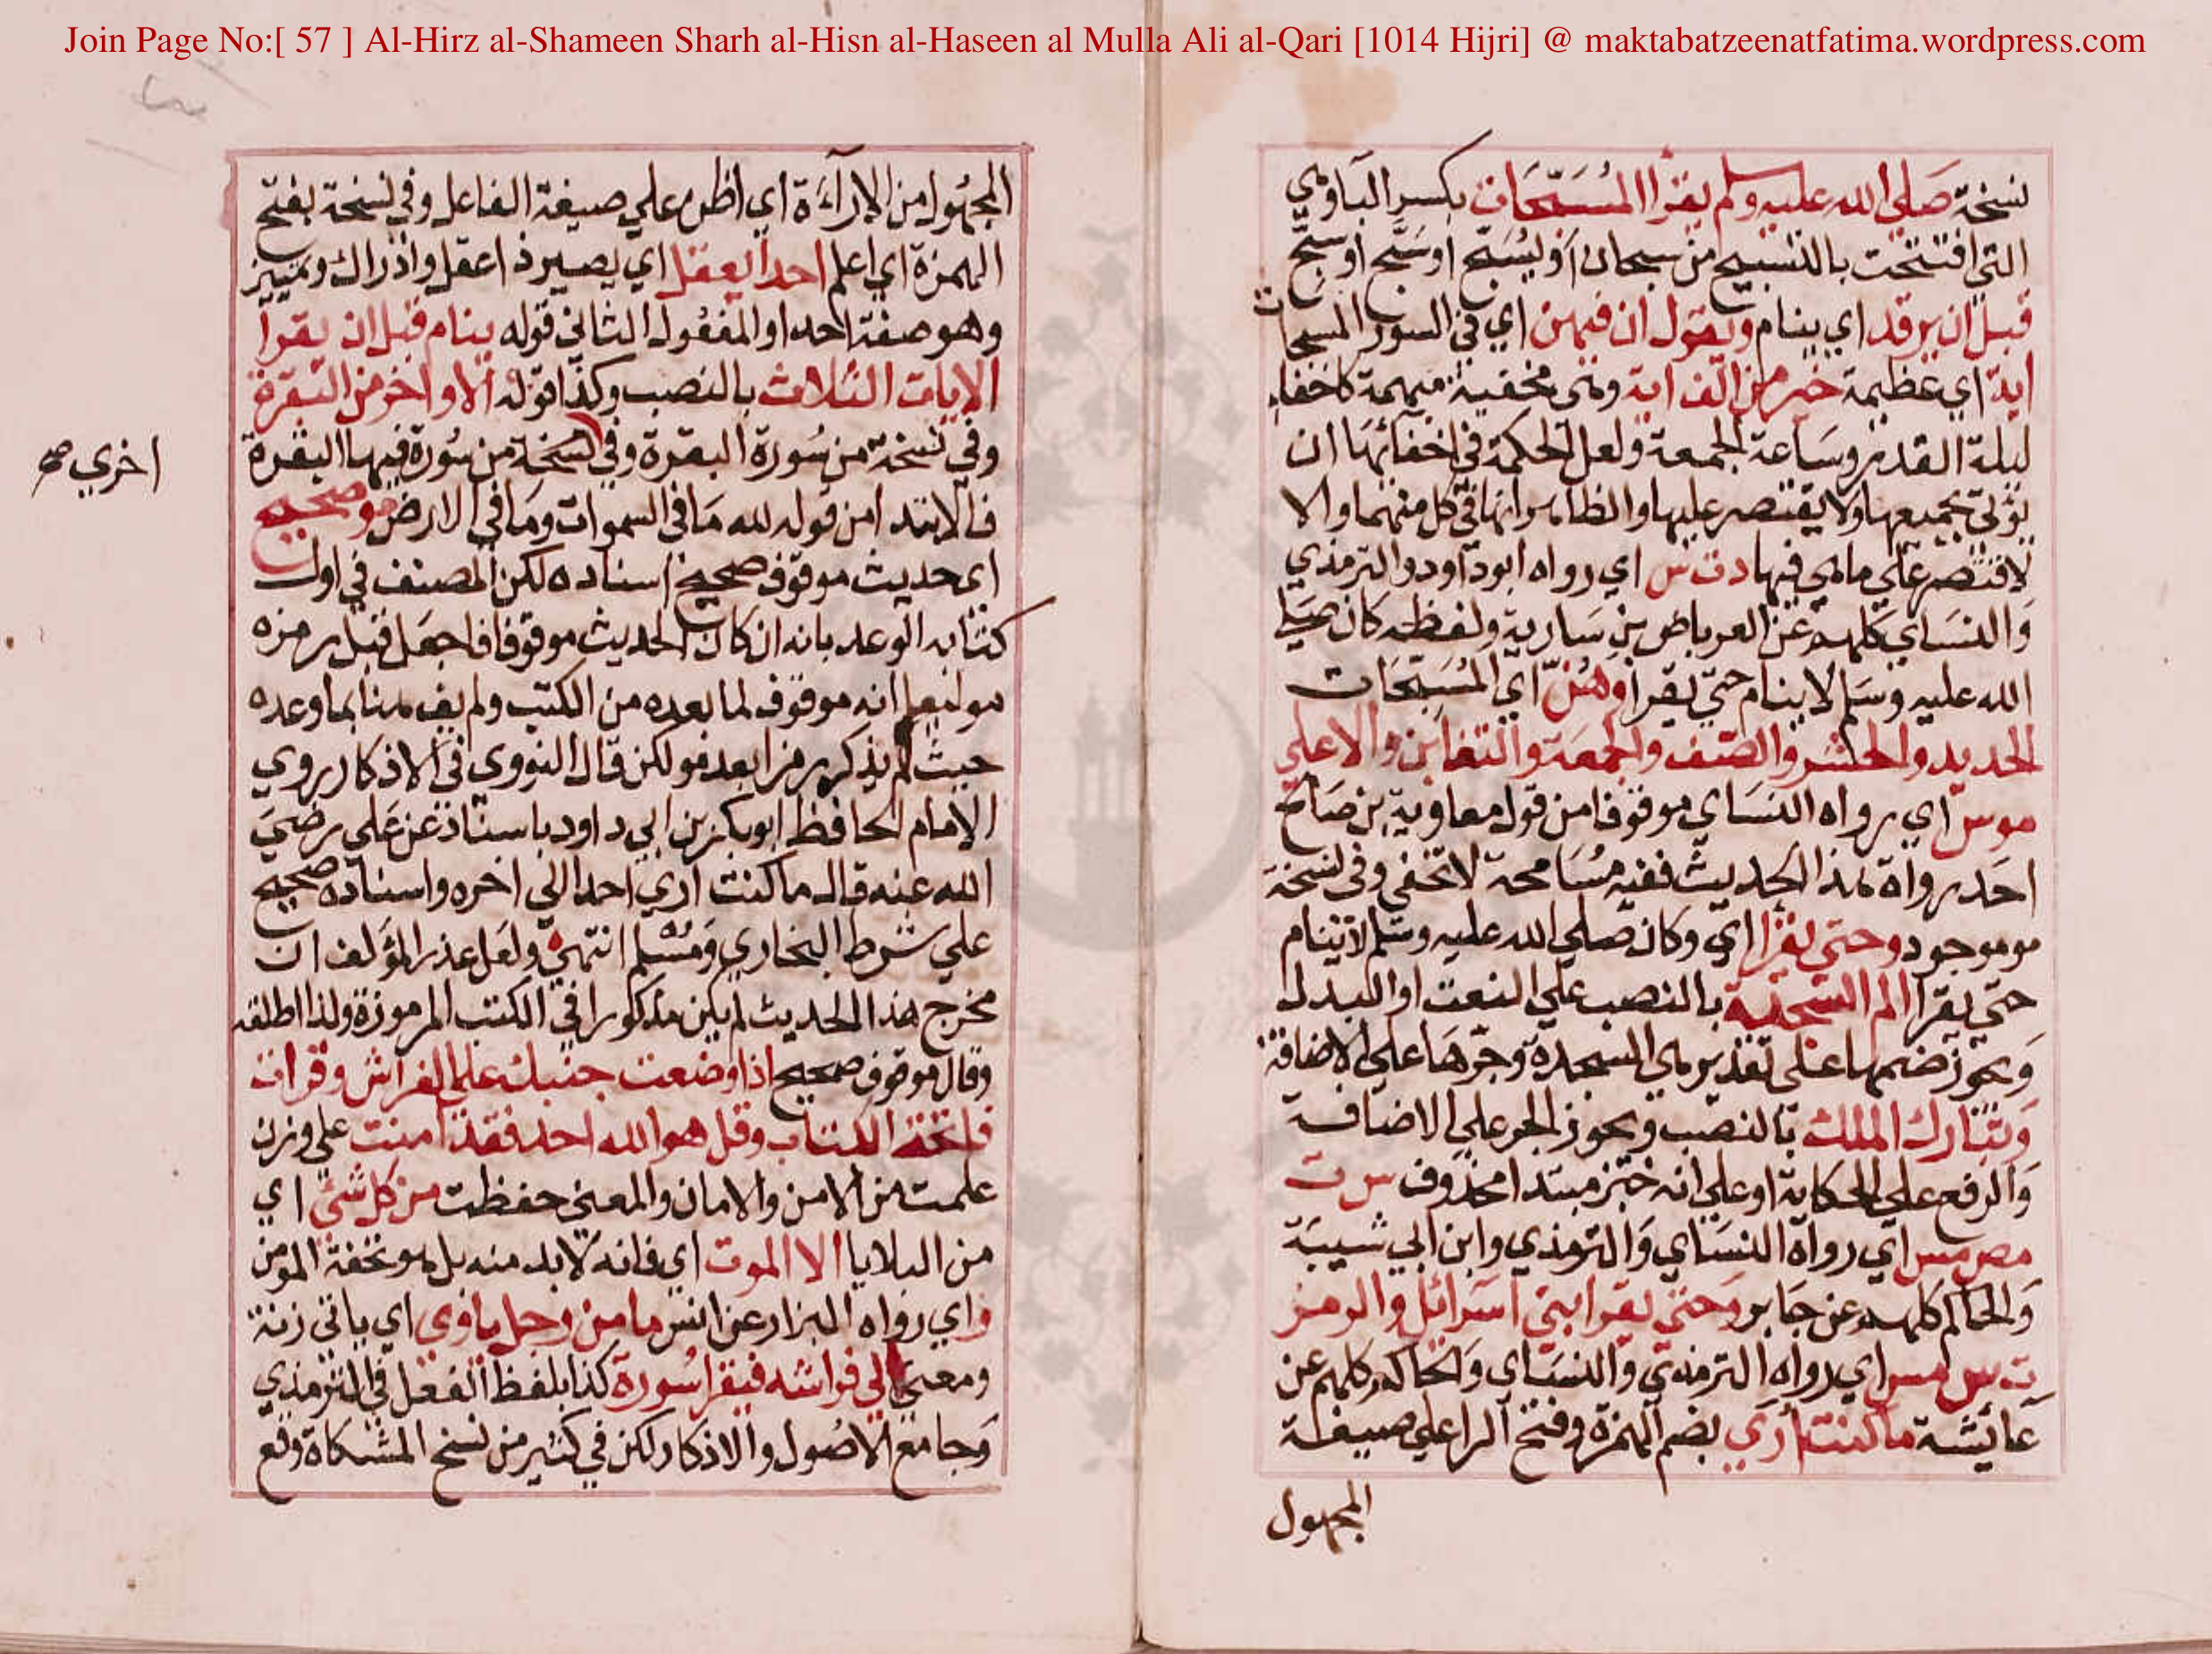 Join Page No:[ 57 ] Al-Hirz al-Shameen Sharh al-Hisn al-Haseen al Mulla Ali al-Qari [1014 Hijri] @ maktabatzeenatfatima.wordpress.com
نسخة صلى الله عليه وسلم يقرا المُسَبِّحَات بكسر الباء وهي
التي افتتحت بالتسبيح من سبحان او يُسَبِّح او سَبَّح او سَبِّح
قبل ان يرقد اي ينام ويقول ان فيهن اي في السور المسبحات
اية اي عظيمة خير من الف اية وهي مخفية مبهمة كاخفاء
ليلة القدر وساعة الجمعة ولعل الحكمة في اخفائها ان
يؤتى بجميعها ولا يقتصر عليها والظاهر انها في كل منهما والا
لاقتصر على ما هي فيها د ت س اي رواه ابو داود والترمذي
والنساي كلهم عن العرباض بن سارية ولفظه كان صلى
الله عليه وسلم لا ينام حتى يقرا وهُنّ اي المُسَبِّحَات
الحديد والحشر والصف والجمعة والتغابن والاعلي
موس اي رواه النساي موقوفا من قول معاوية بن صالح
احد رواة هذا الحديث ففيه مُسَامحة لا تخفي وفي نسخة
مو موجود وحتى يقرا اي وكان صلي الله عليه وسلم لا ينام
حتى يقرا الم السجدة بالنصب علي النعت او البدل
ويجوز ضمها على تقدير هي السجدة وجرها علي الاضافة
وتبارك الملك بالنصب ويجوز الجر علي الاضافة
والرفع علي الحكاية او علي انه خبر مبتدا محذوف س ت
مص مس اي رواه النساي والترمذي وابن ابي شيبة
والحاكم كلهم عن جابر وحتى يقرا بني اسرائل والزمر
ت س مس اي رواه الترمذي والنساي والحاكم كلهم عن
عائشة ما كنت أري بضم الهمزة وفتح الرا علي صيغة
المجهول
المجهول من الاراءة اي اظن علي صيغة الفاعل وفي نسخة بفتح
الهمزة اي اعلم احدا يعقل اي يصير ذا عقل وادراك وتمييز
وهو صفة احدا والمفعول الثاني قوله ينام قبل ان يقرا
الايات الثلاث بالنصب وكذا قوله الاواخر من البقرة
وفي نسخة من سُورة البقرة وفي نسخة من سُورة فيها البقرة
اخري صح
فالابتدا من قوله لله ما في السموات وما في الارض مو صحيح
اى حديث موقوف صحيح اسناده لكن المصنف في اول
كتابه الوعد بانه ان كان الحديث موقوفا فاجعل قبل رمزه
مو ليعلم انه موقوف لما بعده من الكتب ولم يف هنا بما وعده
حيث لم يذكر رمزا بعد مو لكن قال النووي في الاذكار روي
الامام الحافظ ابو بكر بن ابي داود باسناده عن علي رضيَ
الله عنه قال ما كنت اري احدا الي اخره واسناده صحيح
علي شرط البخاري ومُسْلم انتهيٰ ولعل عذر المؤلف ان
مخرج هذا الحديث لم يكن مذكورا في الكتب المرموزة ولذا اطلقه
وقال موقوف صحيح اذا وضعت جنبك علي الفراش وقرات
فاتحة الكتاب وقل هو الله احد فقد امنت علي وزن
علمت من الامن والامان والمعنى حفظت من كل شئ اي
من البلايا الا الموت اي فانه لا بد منه بل هو تحفة المومن
ر اي رواه البزار عن انس ما من رجل ياوي اي ياتي زنة
ومعنى الى فراشه فيقرا سُورة كذا بلفظ الفعل في الترمذي
وجامع الاصُول والاذكار لكن في كثير من نسخ المشكاة وقع